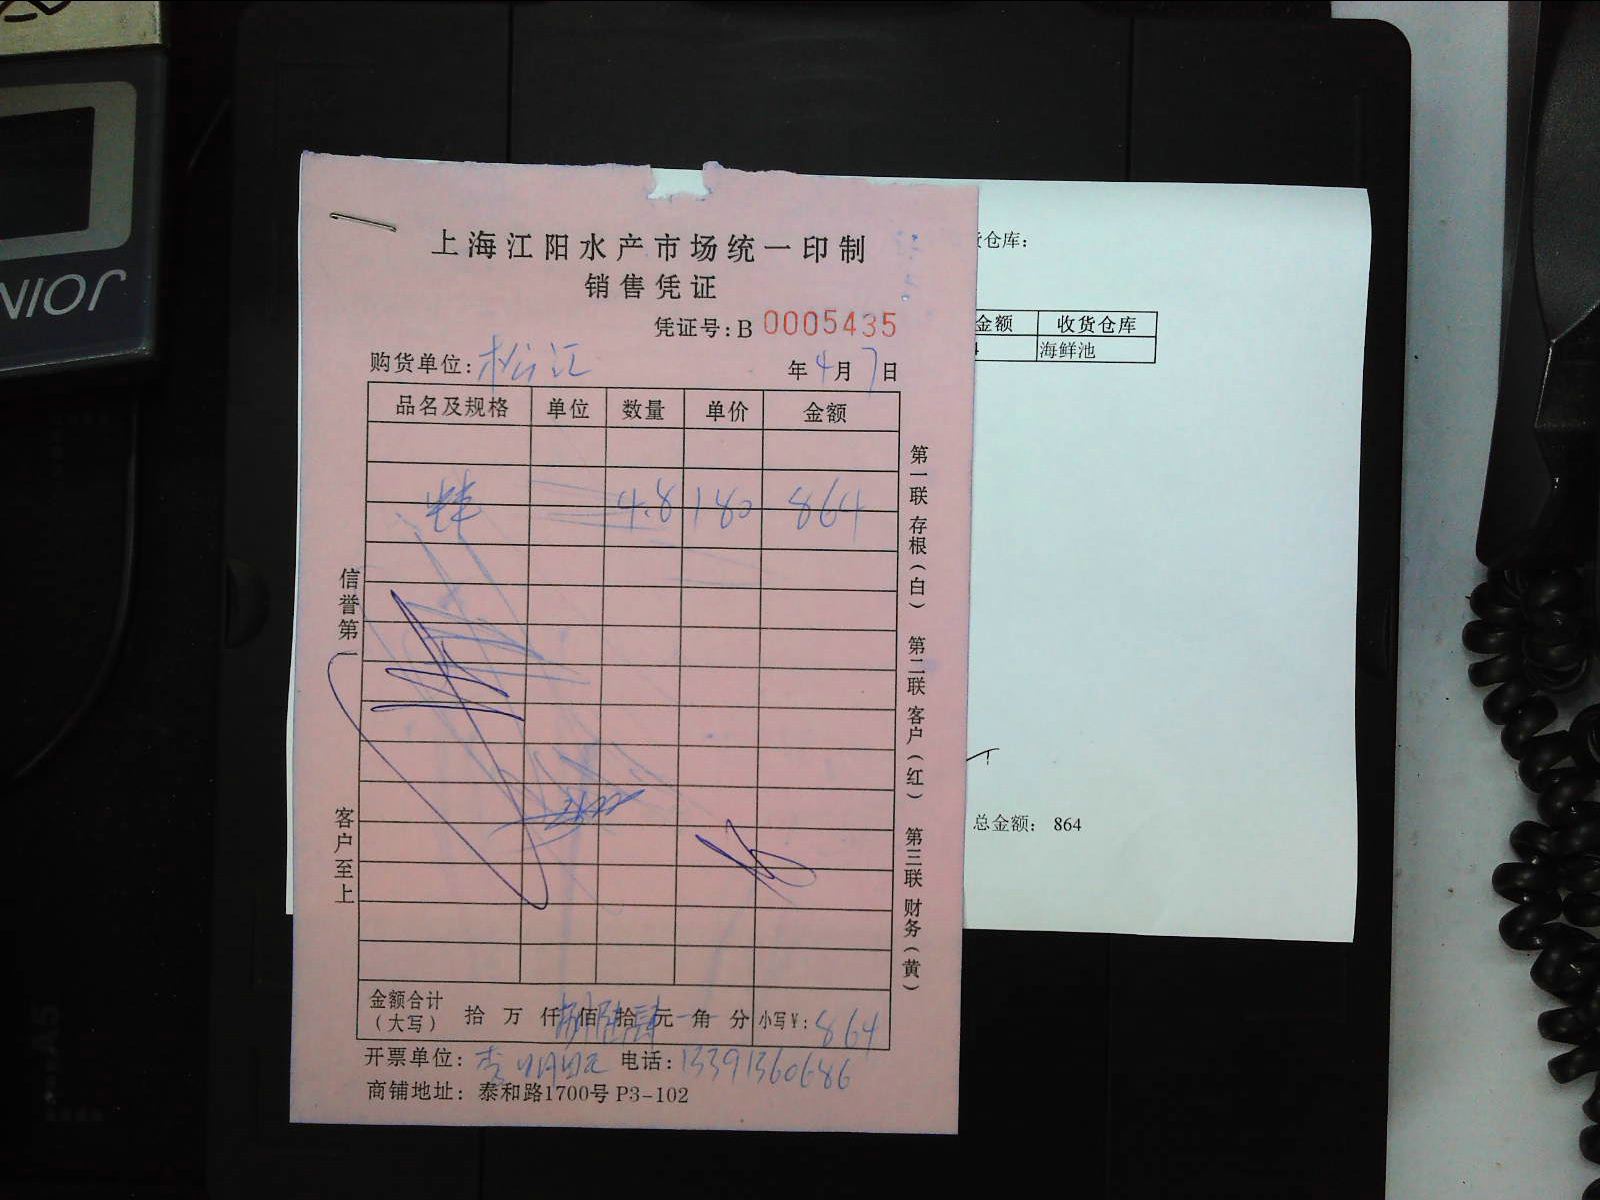 JNIOR
上海江阳水产市场统一印制
销售凭证
凭证号:B 0005435
购货单位:松江 年4月7日
品名及规格 单位 数量 单价 金额
蚌 4.8 180 864
信誉第一
客户至上
第一联存根(白) 第二联客户(红) 第三联财务(黄)
金额合计
(大写) 拾万仟捌佰陆拾肆元角分 小写¥:864
开票单位: 电话:13391360686
商铺地址:泰和路1700号 P3-102
仓库:
金额 收货仓库
海鲜池
总金额: 864
A5